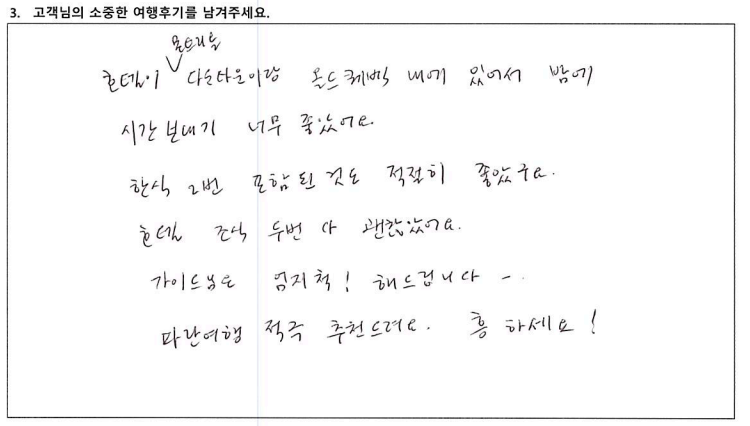 3. 고객님의 소중한 여행후기를 남겨주세요.
몬트리올
호텔이 다운타운이랑 올드퀘벡 내에 있어서 밤에
시간 보내기 너무 좋았어요.
한식 2번 포함된 것도 적절히 좋았구요.
호텔 조식 두번 다 괜찮았어요.
가이드님도 엄지척! 해드립니다 -.
파란여행 적극 추천드려요. 흥 하세요!